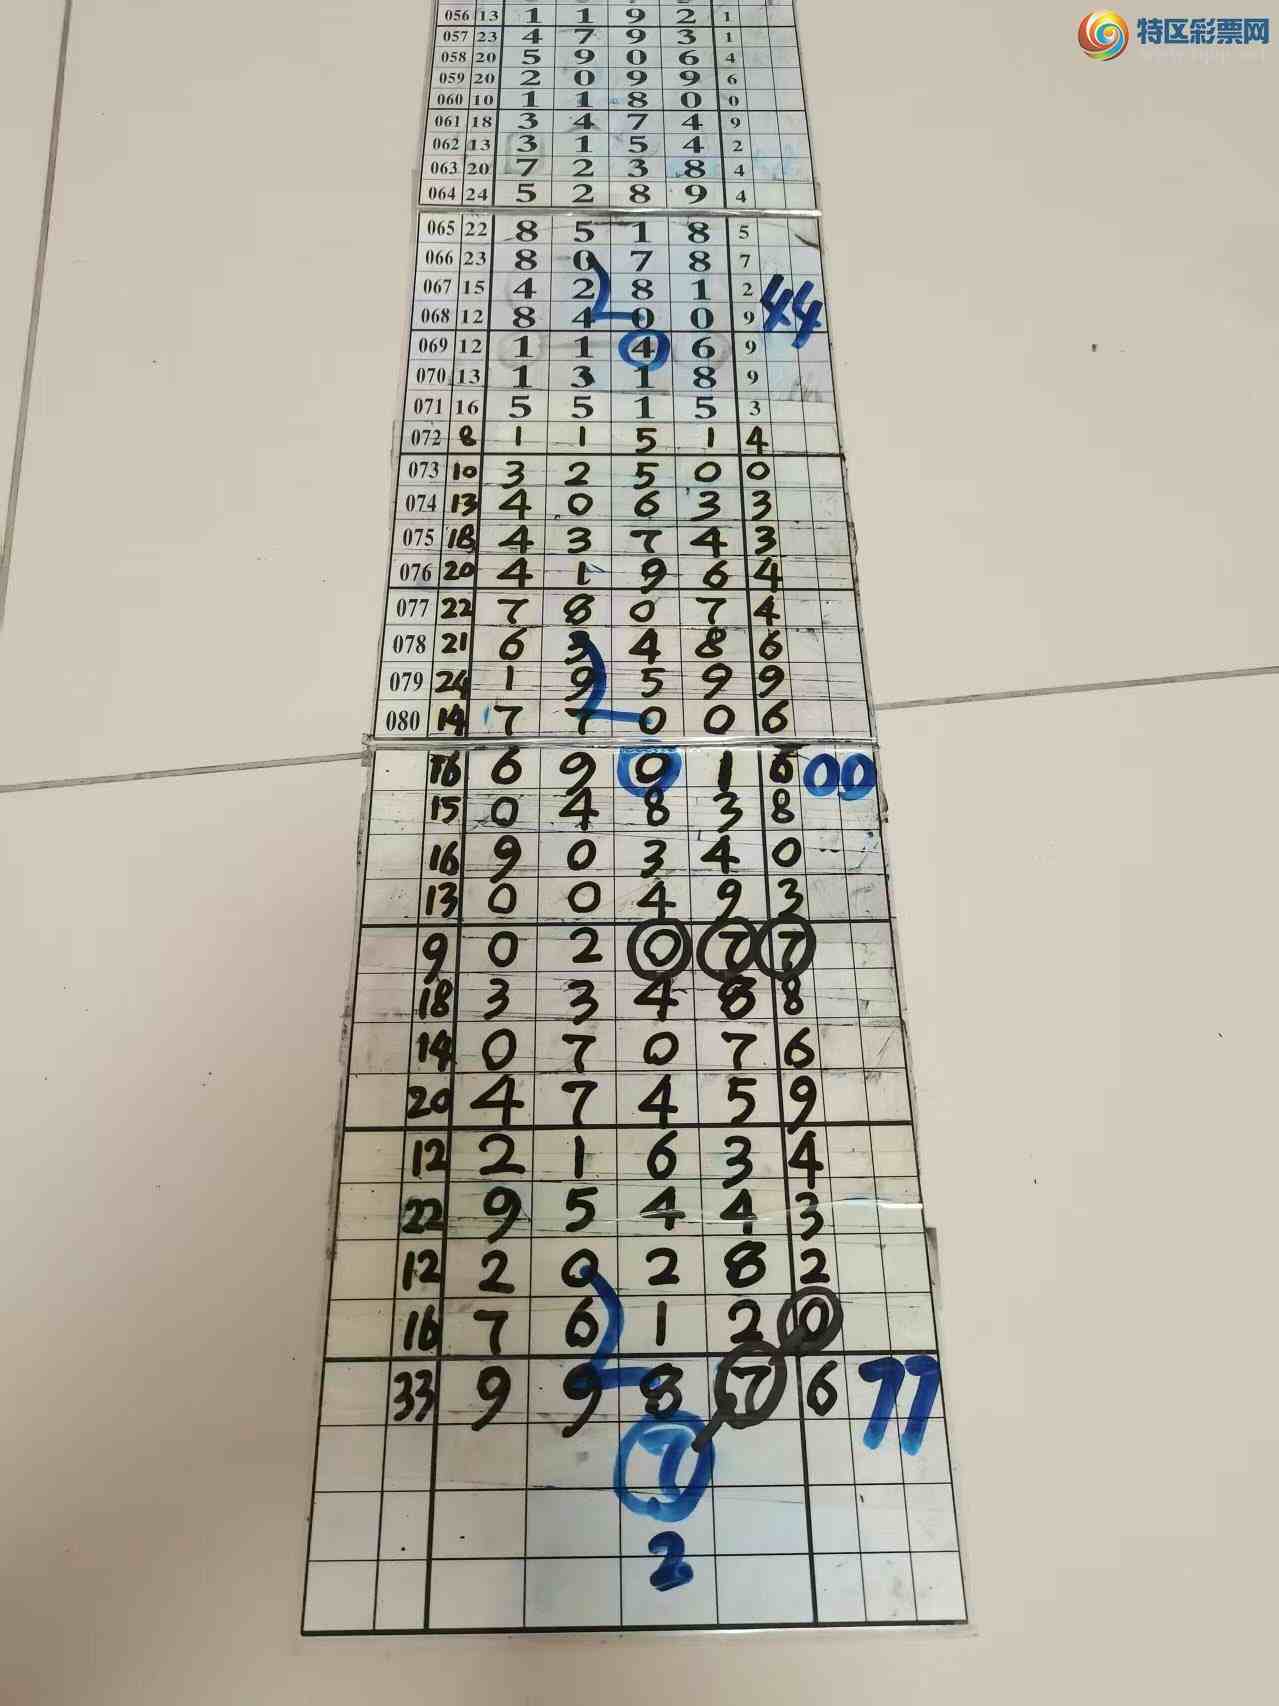 特区彩票网
056 13 1 1 9 2 1
057 23 4 7 9 3 1
058 20 5 9 0 6 4
059 20 2 0 9 9 6
060 10 1 1 8 0 0
061 18 3 4 7 4 9
062 13 3 1 5 4 2
063 20 7 2 3 8 4
064 24 5 2 8 9 4
065 22 8 5 1 8 5
066 23 8 0 7 8 7
067 15 4 2 8 1 2 44
068 12 8 4 0 0 9
069 12 1 1 4 6 9
070 13 1 3 1 8 9
071 16 5 5 1 5 3
072 8 1 1 5 1 4
073 10 3 2 5 0 0
074 13 4 0 6 3 3
075 18 4 3 7 4 3
076 20 4 1 9 6 4
077 22 7 8 0 7 4
078 21 6 3 4 8 6
079 24 1 9 5 9 9
080 14 7 7 0 0 6
16 6 9 0 1 6 00
15 0 4 8 3 8
16 9 0 3 4 0
13 0 0 4 9 3
9 0 2 0 7 7
18 3 3 4 8 8
14 0 7 0 7 6
20 4 7 4 5 9
12 2 1 6 3 4
22 9 5 4 4 3
12 2 0 2 8 2
16 7 6 1 2 0
33 9 9 8 7 6 77
7
2